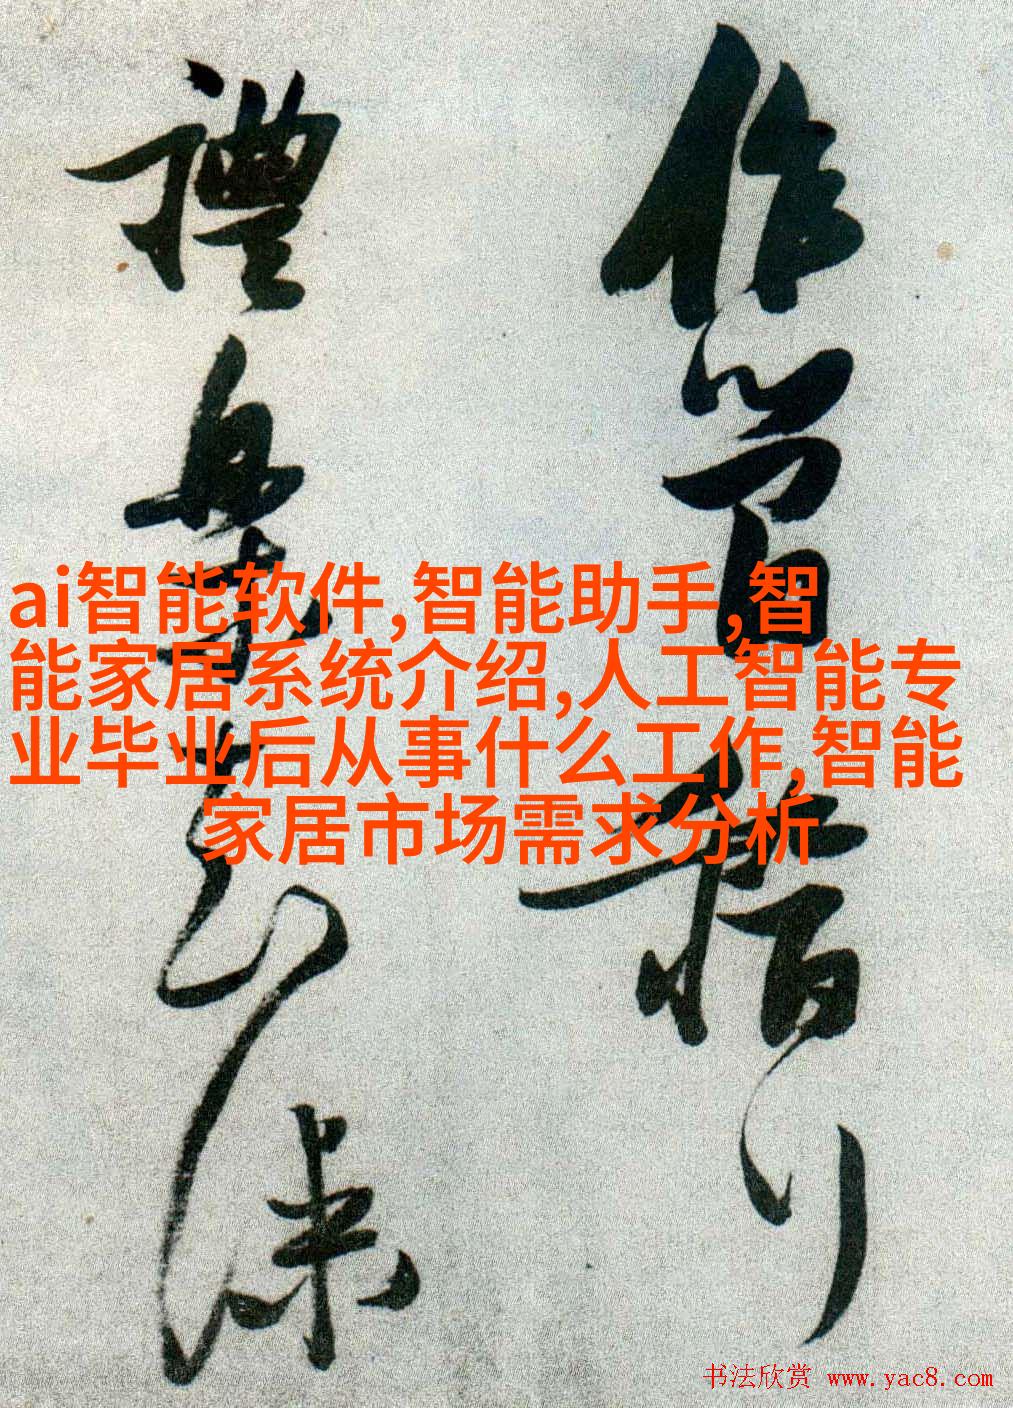 作
禮樂
ai智能软件,智能助手,智
能家居系统介绍,人工智能专
业毕业后从事什么工作,智能
家居市场需求分析
书法欣赏 www.yac8.com